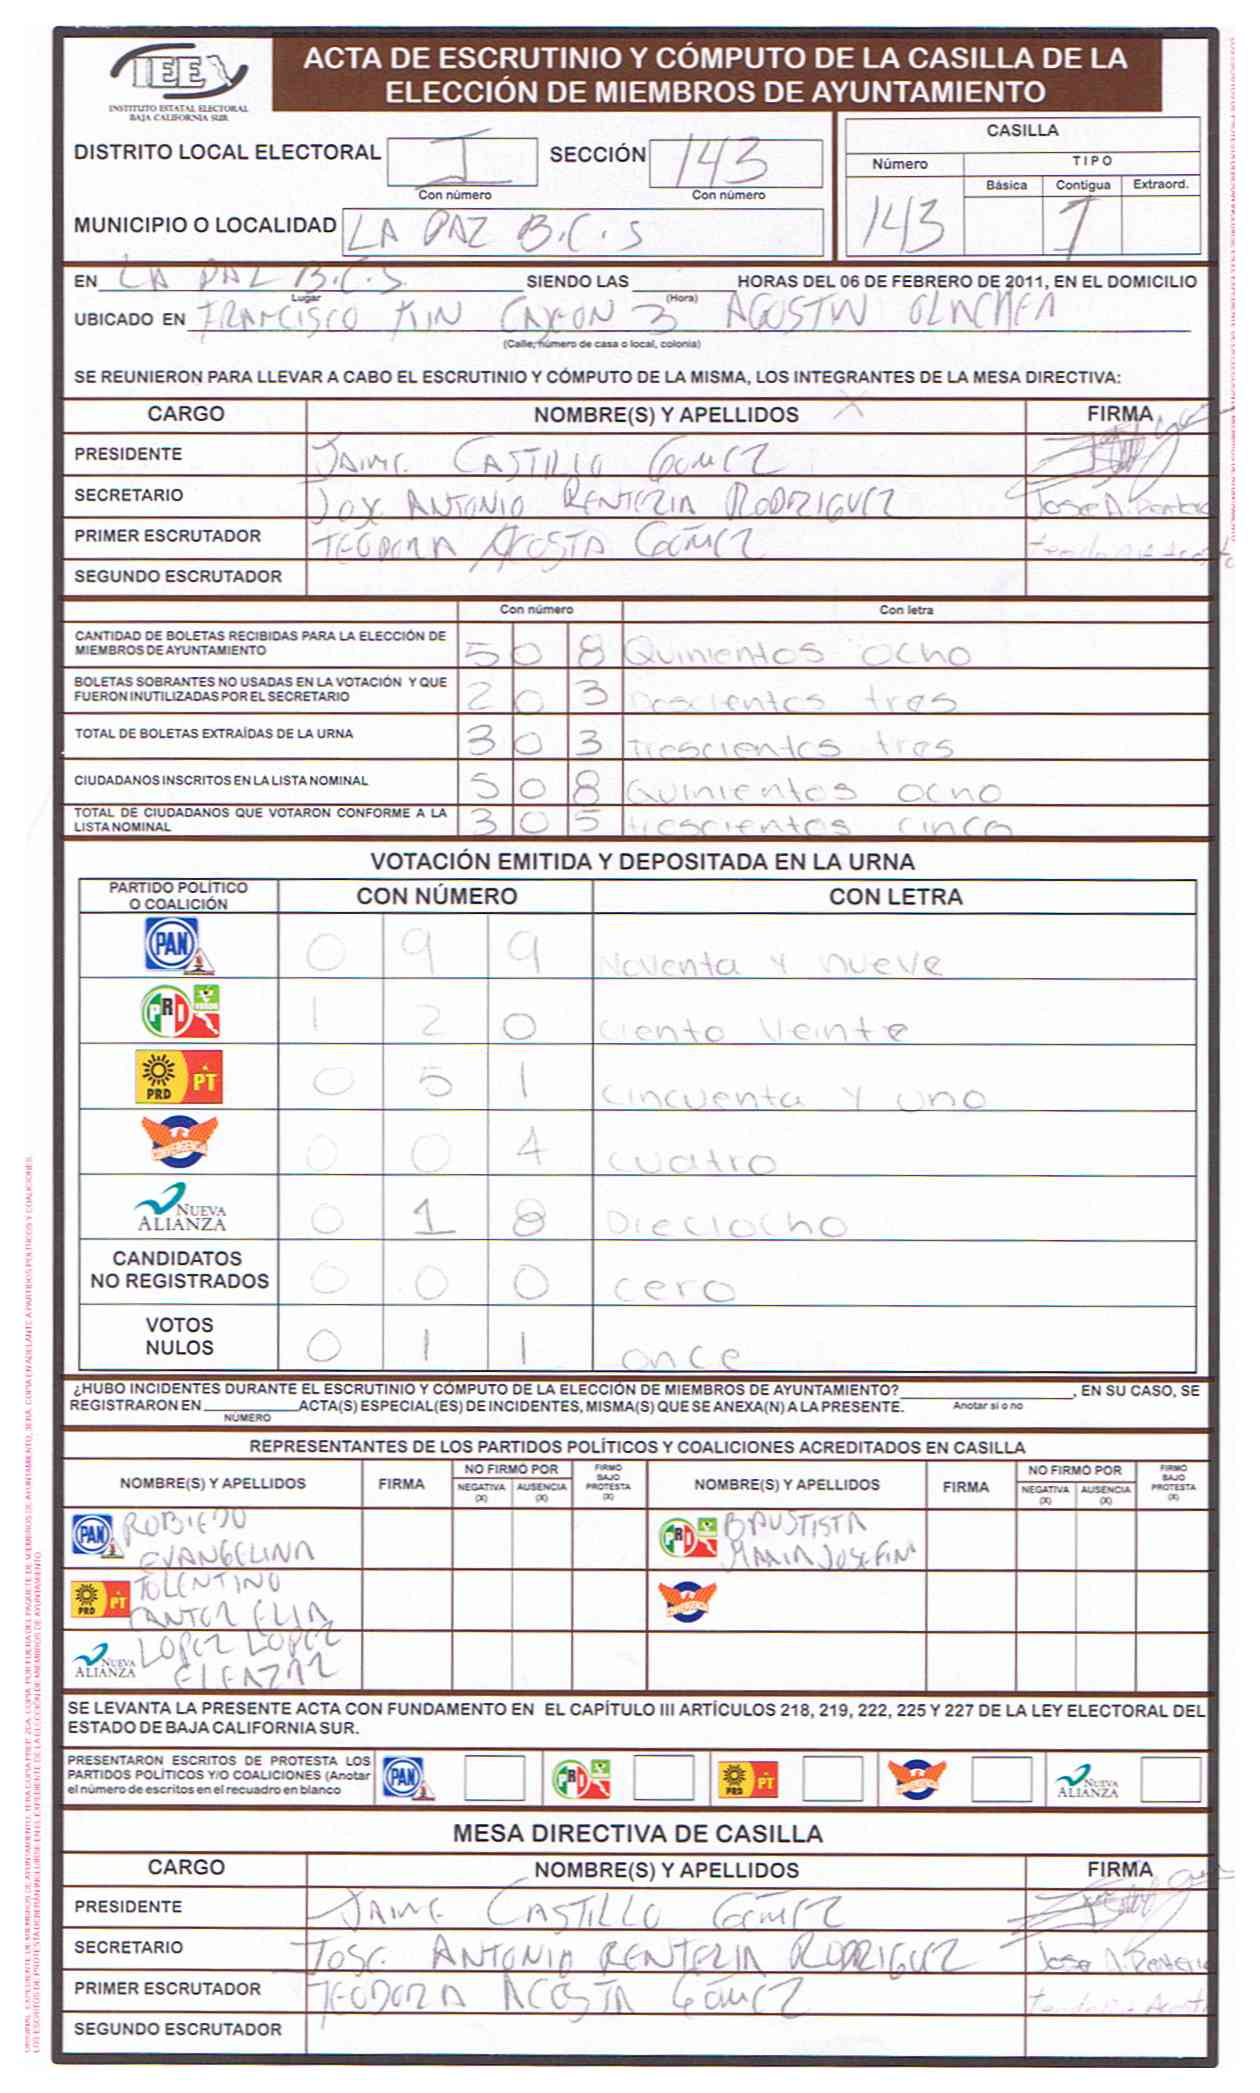 IEE
INSTITUTO ESTATAL ELECTORAL
BAJA CALIFORNIA SUR
ACTA DE ESCRUTINIO Y CÓMPUTO DE LA CASILLA DE LA
ELECCIÓN DE MIEMBROS DE AYUNTAMIENTO
DISTRITO LOCAL ELECTORAL I SECCIÓN 143
Con número Con número
MUNICIPIO O LOCALIDAD LA PAZ B.C.S
CASILLA
Número TIPO
Básica Contigua Extraord.
143 1
EN LA PAZ B.C.S SIENDO LAS HORAS DEL 06 DE FEBRERO DE 2011, EN EL DOMICILIO
Lugar (Hora)
UBICADO EN FRANCISCO KIN CAJEON 3 AGUSTIN OLACHEA
(Calle, número de casa o local, colonia)
SE REUNIERON PARA LLEVAR A CABO EL ESCRUTINIO Y CÓMPUTO DE LA MISMA, LOS INTEGRANTES DE LA MESA DIRECTIVA:
CARGO NOMBRE(S) Y APELLIDOS FIRMA
PRESIDENTE JAIME CASTILLO GOMEZ
SECRETARIO JOSE ANTONIO RENTERIA RODRIGUEZ Jose A. Renteria
PRIMER ESCRUTADOR TEODORA ACOSTA GOMEZ
SEGUNDO ESCRUTADOR
Con número Con letra
CANTIDAD DE BOLETAS RECIBIDAS PARA LA ELECCIÓN DE
MIEMBROS DE AYUNTAMIENTO 5 0 8 Quinientos ocho
BOLETAS SOBRANTES NO USADAS EN LA VOTACIÓN Y QUE
FUERON INUTILIZADAS POR EL SECRETARIO 2 0 3 Doscientos tres
TOTAL DE BOLETAS EXTRAÍDAS DE LA URNA 3 0 3 Trescientos tres
CIUDADANOS INSCRITOS EN LA LISTA NOMINAL 5 0 8 Quinientos ocho
TOTAL DE CIUDADANOS QUE VOTARON CONFORME A LA
LISTA NOMINAL 3 0 5 trescientos cinco
VOTACIÓN EMITIDA Y DEPOSITADA EN LA URNA
PARTIDO POLÍTICO
O COALICIÓN CON NÚMERO CON LETRA
PAN 0 9 9 Noventa y nueve
PRI VERDE 1 2 0 Ciento Veinte
PRD PT 0 5 1 Cincuenta y uno
CONVERGENCIA 0 0 4 cuatro
NUEVA ALIANZA 0 1 8 Dieciocho
CANDIDATOS
NO REGISTRADOS 0 0 0 cero
VOTOS
NULOS 0 1 1 once
¿HUBO INCIDENTES DURANTE EL ESCRUTINIO Y CÓMPUTO DE LA ELECCIÓN DE MIEMBROS DE AYUNTAMIENTO? , EN SU CASO, SE
REGISTRARON EN ACTA(S) ESPECIAL(ES) DE INCIDENTES, MISMA(S) QUE SE ANEXA(N) A LA PRESENTE. Anotar si o no
NÚMERO
REPRESENTANTES DE LOS PARTIDOS POLÍTICOS Y COALICIONES ACREDITADOS EN CASILLA
NOMBRE(S) Y APELLIDOS FIRMA NO FIRMÓ POR NEGATIVA (X) AUSENCIA (X) FIRMO BAJO PROTESTA (X) NOMBRE(S) Y APELLIDOS FIRMA NO FIRMÓ POR NEGATIVA (X) AUSENCIA (X) FIRMO BAJO PROTESTA (X)
PAN ROBLEDO PRI BAUSTISTA
EVANGELINA MARIA JOSEFINA
PRD PT TOLENTINO CONVERGENCIA
CANTOR ELIA
NUEVA ALIANZA LOPEZ LOPEZ
ELEAZAR
SE LEVANTA LA PRESENTE ACTA CON FUNDAMENTO EN EL CAPÍTULO III ARTÍCULOS 218, 219, 222, 225 Y 227 DE LA LEY ELECTORAL DEL
ESTADO DE BAJA CALIFORNIA SUR.
PRESENTARON ESCRITOS DE PROTESTA LOS
PARTIDOS POLÍTICOS Y/O COALICIONES (Anotar
el número de escritos en el recuadro en blanco
PAN PRI PRD PT CONVERGENCIA NUEVA ALIANZA
MESA DIRECTIVA DE CASILLA
CARGO NOMBRE(S) Y APELLIDOS FIRMA
PRESIDENTE JAIME CASTILLO GOMEZ
SECRETARIO JOSE ANTONIO RENTERIA RODRIGUEZ Jose A. Renteria
PRIMER ESCRUTADOR TEODORA ACOSTA GOMEZ
SEGUNDO ESCRUTADOR